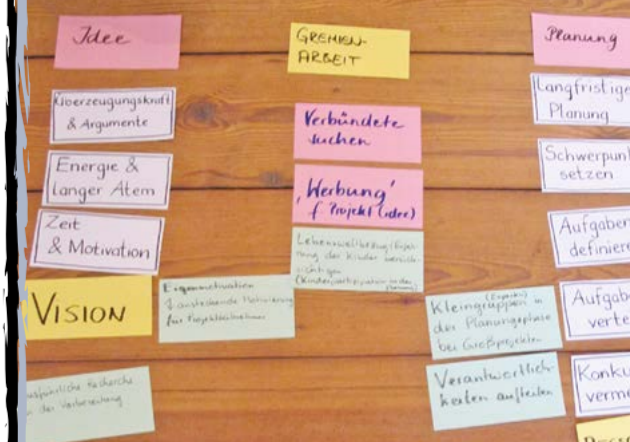 Idee
Überzeugungskraft
& Argumente
Energie &
langer Atem
Zeit
& Motivation
VISION
Eigenmotivation
& ansteckende Motivierung
für
ausführliche Recherche
in der Vorbereitung
GREMIEN-
ARBEIT
Verbündete
suchen
'Werbung'
f. Projekt (idee)
Lebensweltbezug/Eig
der Kinder berück-
sichtigen
(Kinderpartizipation in der
Planung)
Planung
Langfristige
Planung
Schwerpunk
setzen
Aufgaben
definiere
(Experten)
Kleingruppen in
der Planungsphase
bei Großprojekten
Aufgab
verte
Verantwortlich-
keiten aufteilen
Konku
verme